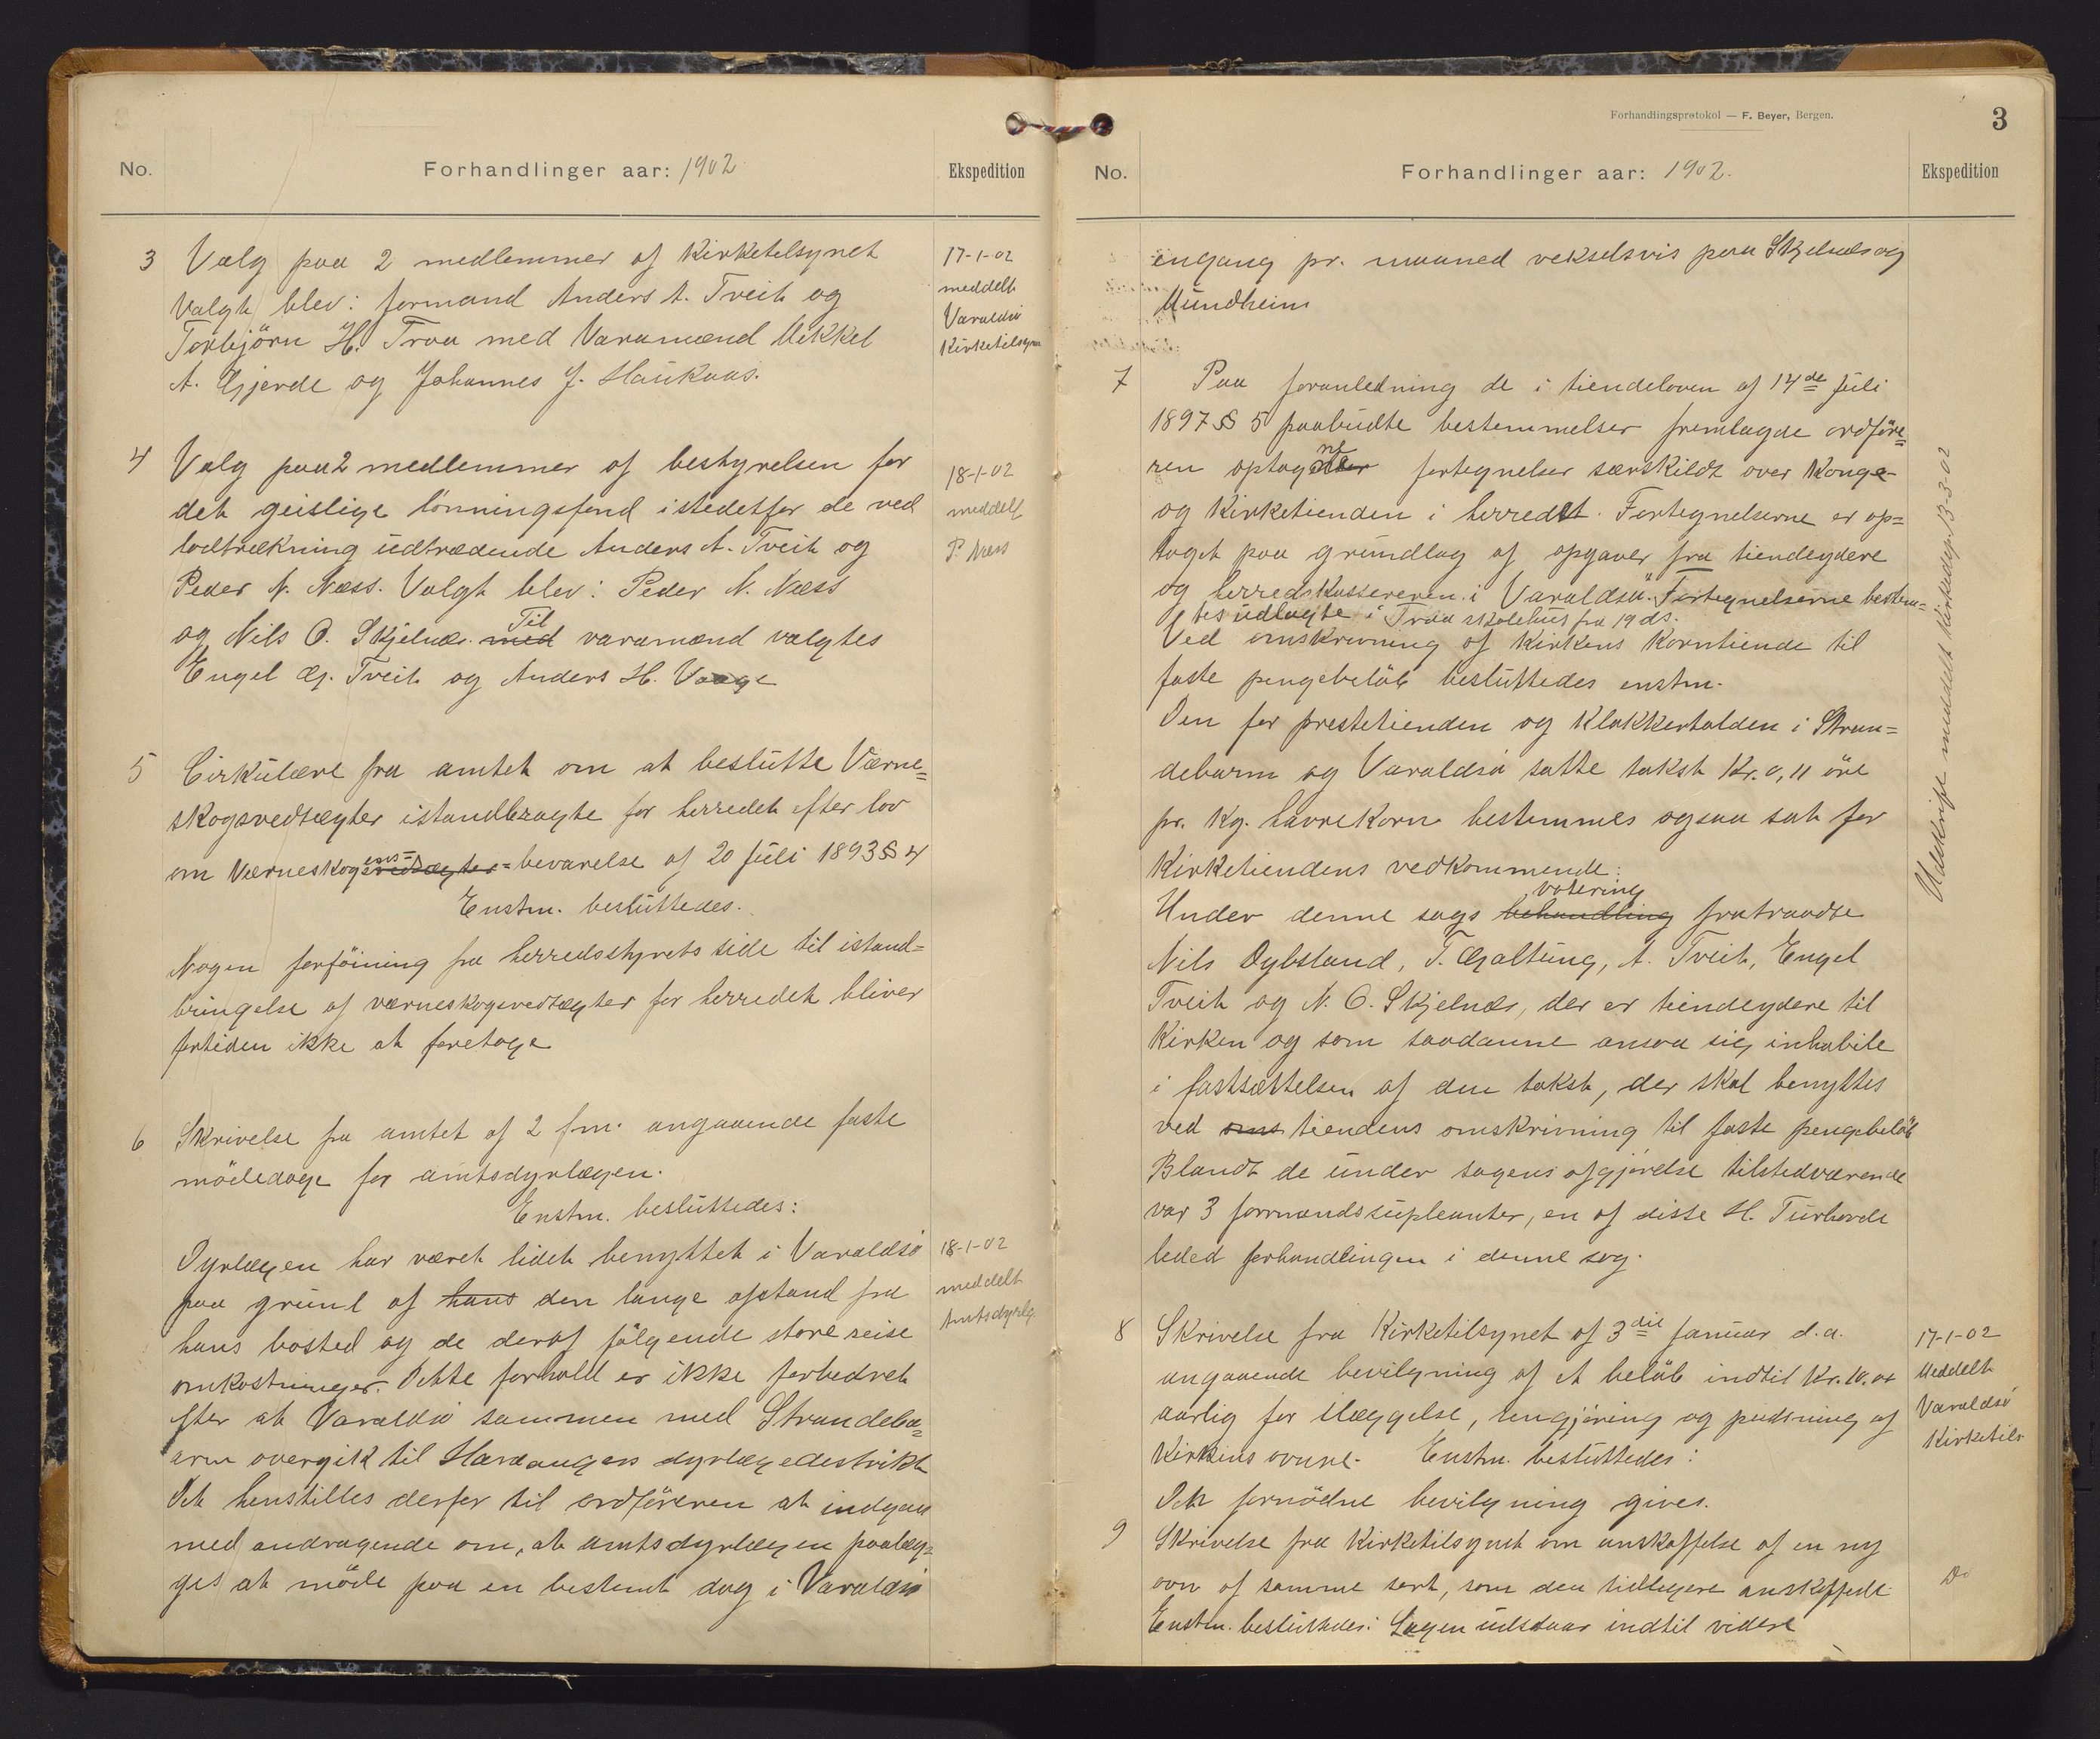 No.
Forhandlinger aar: 1902
Ekspedition
3 Valg paa 2 medlemmer af Kirketilsynet
Valgt blev: formand Anders A. Tveit og
Torbjörn H. Traa med Varamænd Mikkel
A. Gjerde og Johannes J. Haukaas.
17-1-02
meddelt
Varaldsö
Kirketilsyn
4 Valg paa 2 medlemmer af bestyrelsen for
det geislige lönningsfond istedetfor de ved
lodtrækning udtrædende Anders A. Tveit og
Peder N. Næss. Valgt blev: Peder N. Næss
og Nils O. Skjelnæs. med Til varamænd valgtes
Engel G. Tveit og Anders H. Vaage
18-1-02
meddelt
P. Næss
5 Cirkulære fra amtet om at beslutte Værne=
skogsvedtægter istandbragte for herredet efter lov
om Værneskogsvedtægter ens= bevarelse af 20 Juli 1893 § 4
Enstm. besluttedes.
Nogen forföining fra herredsstyrets side til istand=
bringelse af værneskogsvedtægter for herredet bliver
fortiden ikke at foretage
6 Skrivelse fra amtet af 2 f.m. angaaende faste
mödedage for amtsdyrlægen.
Enstm. besluttedes:
Dyrlægen har været lidet benyttet i Varaldsö
paa grund af hans den lange afstand fra
hans bosted og de deraf fölgende store reise
omkostninger. Dette forhold er ikke forbedret
efter at Varaldsö sammen med Strandeba=
arm overgik til Hardangers dyrlægedestrikt
Det henstilles derfor til ordföreren at indgaa
med andragende om, at amtsdyrlægen paalæg=
ges at möde paa en bestemt dag i Varaldsö
18-1-02
meddelt
Amtsdyrlg.
Forhandlingsprotokol — F. Beyer, Bergen.
3
No.
Forhandlinger aar: 1902.
Ekspedition
engang pr. maaned vekselsvis paa Skjelnæs og
Mundheim
7 Paa foranledning de i tiendeloven af 14de Juli
1897 § 5 paabudte bestemmelser fremlagde ordföre=
ren optagne fortegnelser særskildt over Konge-
og Kirketienden i herredet. Fortegnelserne er op=
taget paa grundlag af opgaver fra tiendeydere
og herredskassereren i Varaldsö. Fortegnelserne bestem=
tes udlagte i Traa skolehus fra 19 ds.
Ved omskrivning af Kirkens Korntiende til
faste pengebelöb besluttedes enstm.
Den for prestetienden og Klokkertolden i Stran=
debarm og Varaldsö satte takst Kr. 0,11 öre
pr. Kg. havrekorn bestemmes ogsaa sat for
Kirketiendens vedkommende.
Under denne sags behandling votering fratraadte
Nils Dybsland, T. Galtung, A. Tveit, Engel
Tveit og N. O. Skjelnæs, der er tiendeydere til
Kirken og som saadanne ansaa sig inhabile
i fastsættelsen af den takst, der skal benyttes
ved oms tiendens omskrivning til faste pengebelöb
Blandt de under sagens afgjörelse tilstedværende
var 3 formandssupleanter, en af disse H. Turhovde
leded forhandlingen i denne sag.
Udskrift meddelt Kirkedep 13-3-02
8 Skrivelse fra Kirketilsynet af 3die Januar d.a.
angaaende bevilgning af et belöb indtil Kr. 10.00
aarlig for Ilæggelse, rengjöring og pudsning af
Kirkens ovne. Enstm. besluttedes:
Den fornödne bevilgning gives.
17-1-02
Meddelt
Varaldsö
Kirketils
9 Skrivelse fra Kirketilsynet om anskaffelse af en ny
ovn af samme sort, som den tidligere anskaffede
Enstm. besluttedes: Sagen udstaar indtil videre
Do